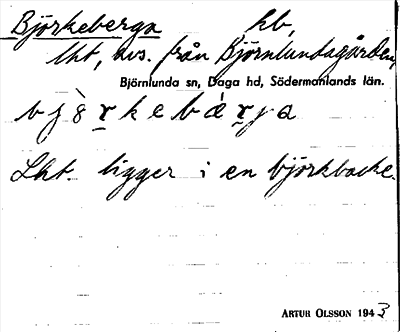 Björkeberga hb,
lht, avs. från Björnlundagården,
Björnlunda sn, Daga hd, Södermanlands län.
Lht. ligger i en björkbacke.
ARTUR OLSSON 1943